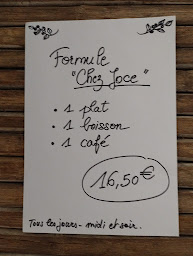 Formule
"Chez Joce"
• 1 plat
• 1 boisson
• 1 café
16,50€
Tous les jours - midi et soir.